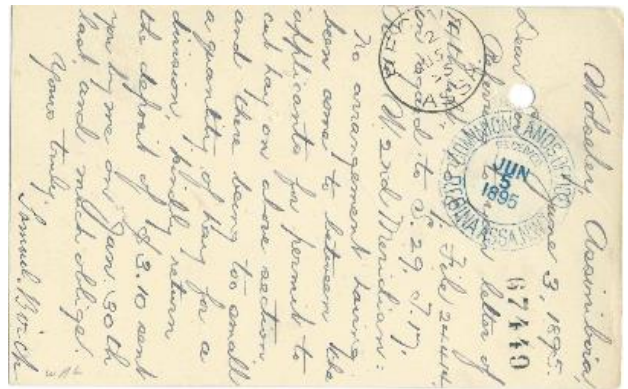 Wolseley Assiniboia
June 3, 1895.
Dear
Referring to letter of
File
in regard to S. 29, T. 17,
W. 2nd Meridian:
No arrangement having
been come to between the
applicants for permit to
cut hay on above section
and there being too small
a quantity of hay for a
division kindly return
the deposit of $3.10 sent
you by me on Jan. 30th
last and much oblige.
Yours truly,
Samuel
DOMINION LANDS OFFICE
RECEIVED
JUN
5
1895
REGINA ASSA
67449